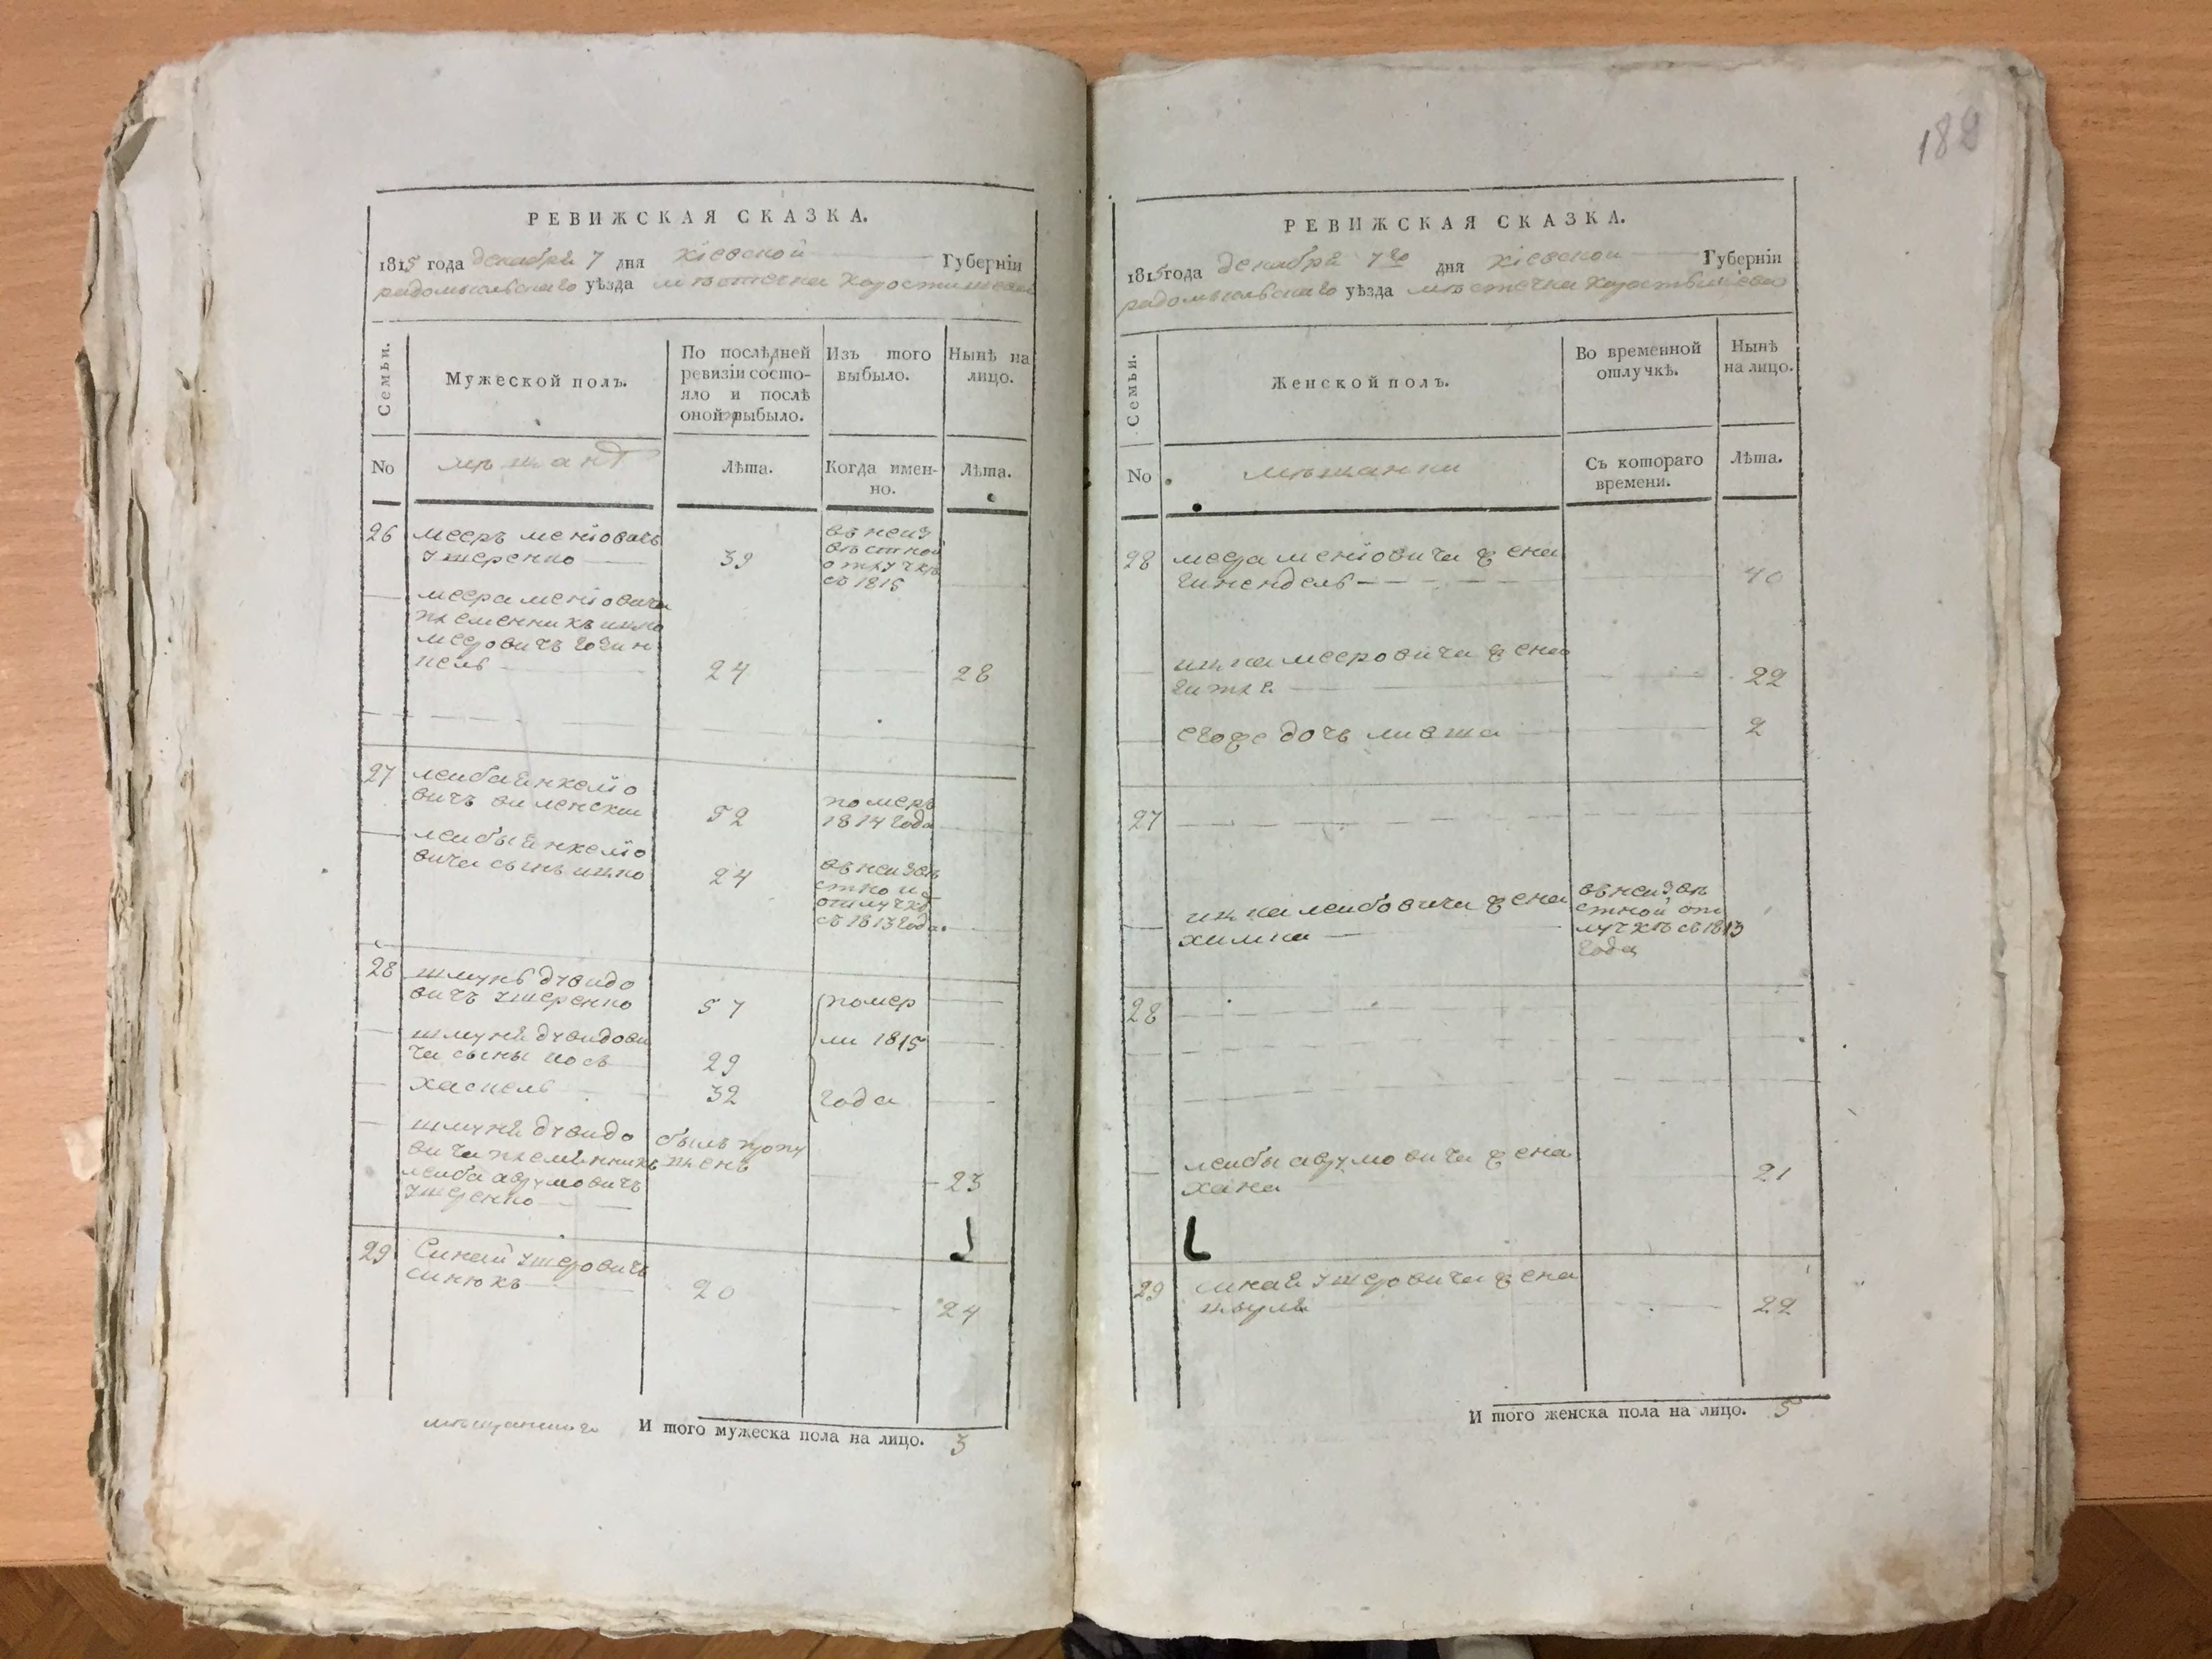 РЕВИЖСКАЯ СКАЗКА.
1815 года декабря 7 дня кіевской Губерніи
радомысльскаго уѣзда мѣстечка Коростишева
Семьи.
Мужеской полъ.
По послѣдней
ревизіи состо-
яло и послѣ
оной выбыло.
Изъ того
выбыло.
Нынѣ на
лицо.
No
мѣщанъ
Лѣта.
Когда имен-
но.
Лѣта.
26 мееръ меніовичъ
ушеренко 39
въ неиз
вѣстной
отлучкѣ
съ 1815
меера меніовича
племенникъ ицко
меровичъ
24 28
27 лейба Енкеліо
вичъ виленскии 52
померъ
1814 года
лейбы Енкеліо
вича сынъ ицко 24
въ неизвѣ
стной
отлучкѣ
съ 1813 года.
28 шмунь дувидо
вичъ ушеренко 57 помер
шмуня дувидови
ча сыны иось 29 ли 1815
хаскель 32 года
шмуня дувидо
вича племянникъ
лейба аврумовичъ
ушеренко
былъ пропу
щенъ
23
29 Синай ушеровичъ
синюкъ 20 24
мѣщанского И того мужеска пола на лицо. 3
188
РЕВИЖСКАЯ СКАЗКА.
1815 года декабря 7го дня кіевской Губерніи
радомысльскаго уѣзда мѣстечка Коростышева
Семьи.
Женской полъ.
Во временной
отлучкѣ.
Нынѣ
на лицо.
No
мѣщанки
Съ котораго
времени.
Лѣта.
28 меера меніовича жена
гинендель 40
ицка мееровича жена
гитля 22
егоже дочь ливша 2
27
ицка лейбовича жена
химка
въ неизвѣ
стной от
лучкѣ съ 1813
года
28
лейбы аврумовича жена
хана 21
29 синая ушеровича жена
22
И того женска пола на лицо. 5